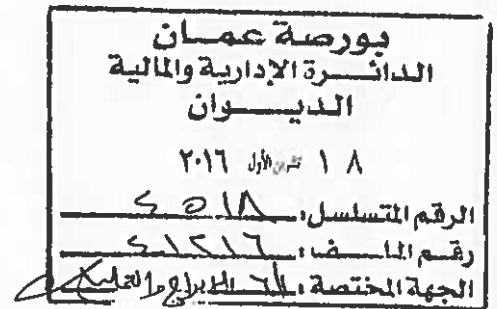 بورصة عمان
الدائرة الإدارية والمالية
الديوان
١٨ تشرين الأول ٢٠١٦
الرقم المتسلسل: ٤٥١٨
رقم الملف: ٤١٢١٦
الجهة المختصة: الإدراج والعمليات